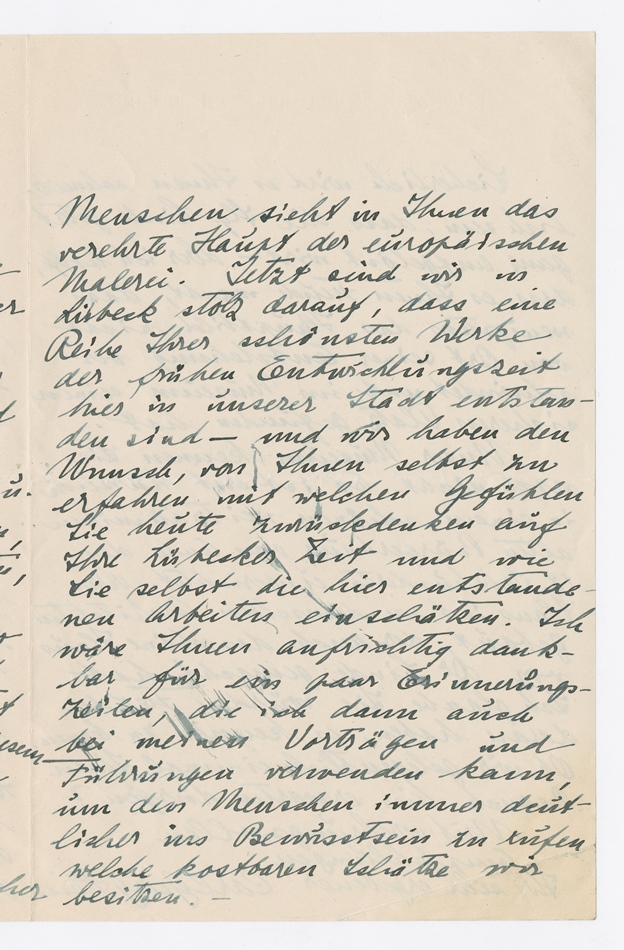 Menschen sieht in Ihnen das
verehrte Haupt der europäischen
Malerei. Jetzt sind wir in
Lübeck stolz darauf, dass eine
Reihe Ihrer schönsten Werke
der frühen Entwicklungszeit
hier in unserer Stadt entstan-
den sind – und wir haben den
Wunsch, von Ihnen selbst zu
erfahren mit welchen Gefühlen
Sie heute zurückdenken auf
Ihre Lübecker Zeit und wie
Sie selbst die hier entstande-
nen Arbeiten einschätzen. Ich
wäre Ihnen aufrichtig dank-
bar für ein paar Erinnerungs-
zeilen, die ich dann auch
bei meinen Vorträgen und
Führungen verwenden kann,
um den Menschen immer deut-
licher ins Bewusstsein zu rufen
welche kostbaren Schätze wir
besitzen. –